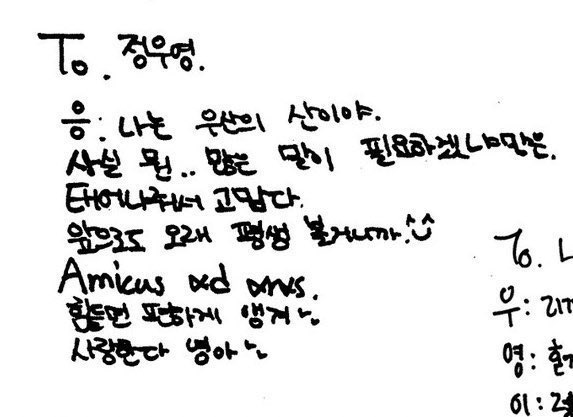 To. 정우영.
응: 나는 우산의 산이야.
사실 뭔.. 많은 말이 필요하겠냐만은.
태어나줘서 고맙다.
앞으로도 오래 평생 볼거니까.^^
Amicus ad aras.
힘들면 편하게 앵겨^^
사랑한다 영아^^
To. 나
우: 리가
영: 
이: